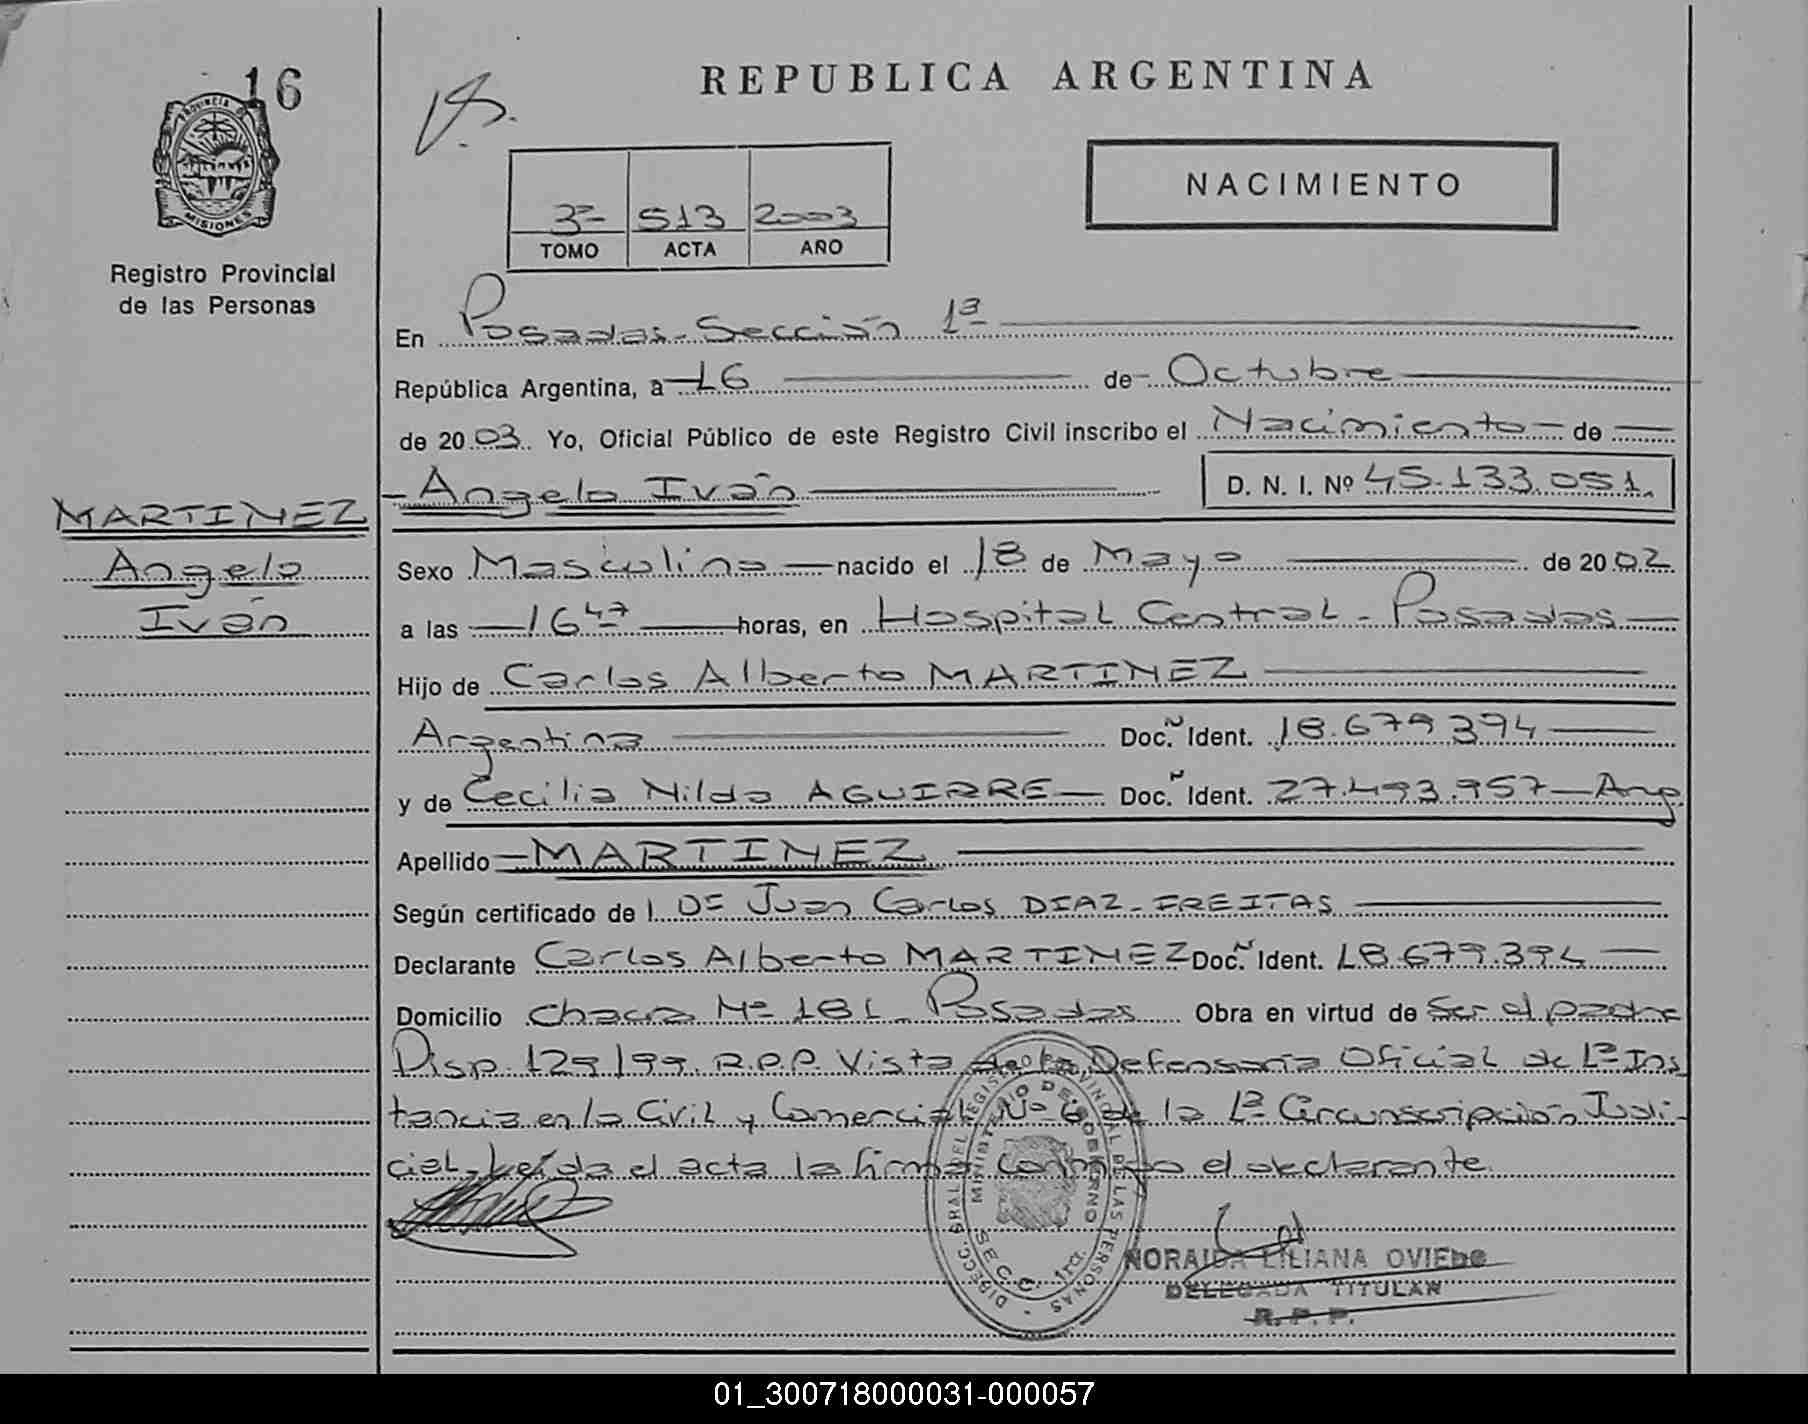 16
PROVINCIA DE
MISIONES
Registro Provincial
de las Personas
MARTINEZ
Angelo
Iván
REPUBLICA ARGENTINA
NACIMIENTO
3º 513 2003
TOMO ACTA AÑO
En Posadas-Sección 1ª
República Argentina, a 16 de Octubre
de 2003. Yo, Oficial Público de este Registro Civil inscribo el Nacimiento de
Angelo Iván D. N. I. Nº 45.133.051.
Sexo Masculino nacido el 18 de Mayo de 2002
a las 16 47 horas, en Hospital Central - Posadas
Hijo de Carlos Alberto MARTINEZ
Argentina Doc. Ident. 18.679.394
y de Cecilia Nilda AGUIRRE Doc. Ident. 27.493.957 Arg
Apellido MARTINEZ
Según certificado de l Dr Juan Carlos DIAZ-FREITAS
Declarante Carlos Alberto MARTINEZ Doc. Ident. 18.679.394
Domicilio Chacra Nº 181 - Posadas Obra en virtud de Ser el padre
Disp. 129/99. R.P.P. Vista de la Defensoria Oficial de 1ª Ins
tancia en lo Civil y Comercial Nº 6 de la 1ª Circunscripción Judi-
cial. Leída el acta la firma conmigo el declarante
DIRECC. GRAL. DEL REGISTRO PROVINCIAL DE LAS PERSONAS
MINISTERIO DE GOBIERNO
SECC. 1ra.
NORAIDA LILIANA OVIEDO
DELEGADA TITULAR
R. P. P.
01_300718000031-000057